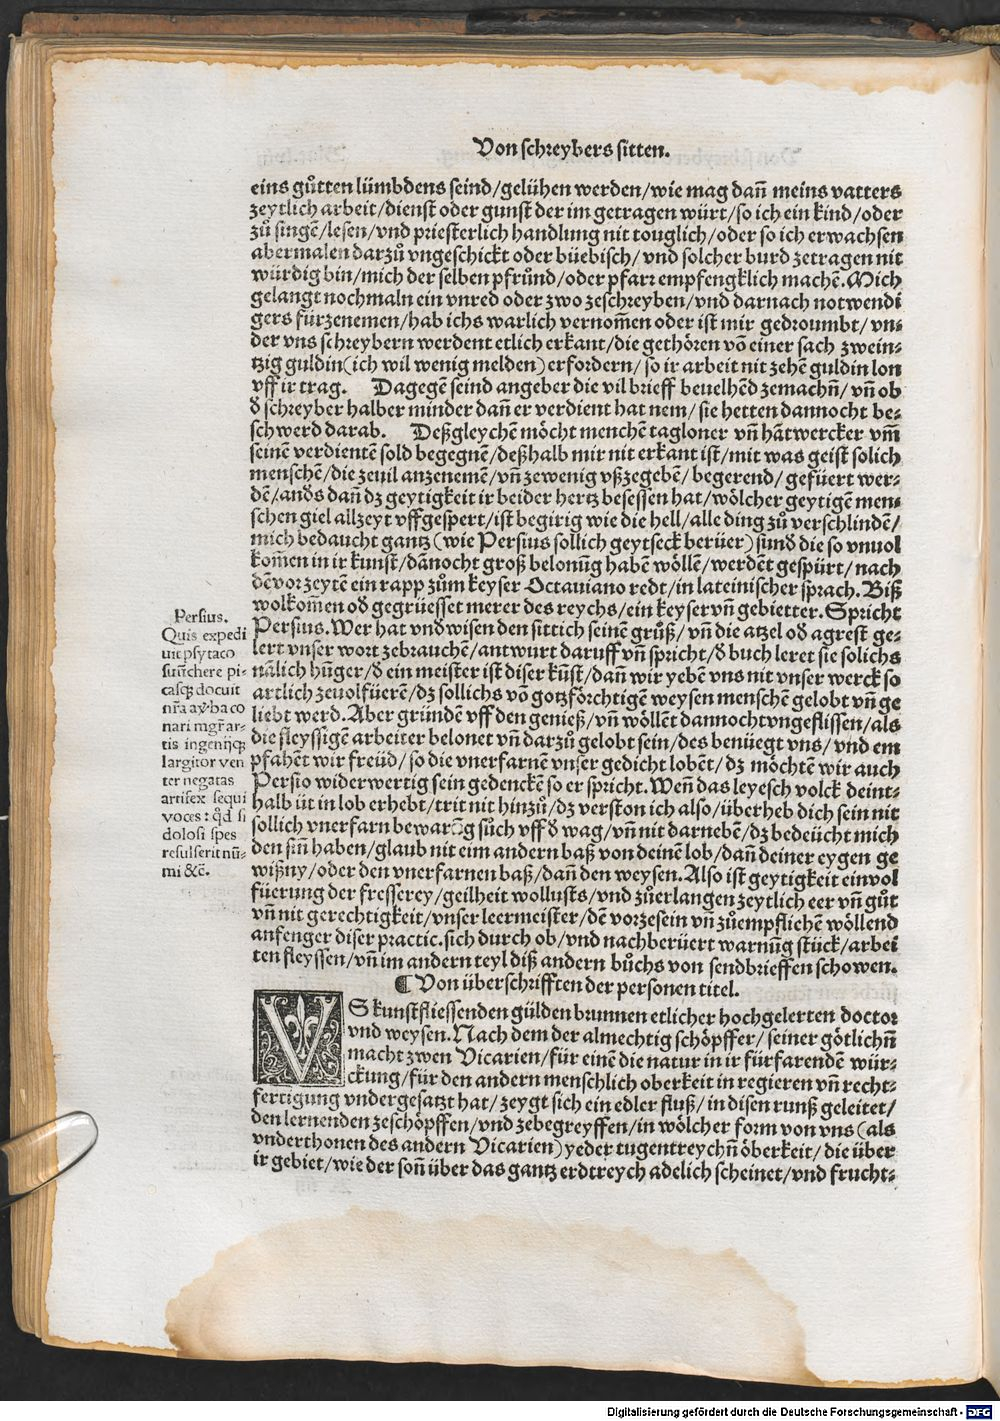 Von schreybers sitten.
eins gůtten lümbdens seind/gelühen werden/wie mag dañ meins vatters
zeytlich arbeit/dienst oder gunst der im getragen würt/so ich ein kind/oder
zů singẽ/lesen/vnd priesterlich handlung nit touglich/oder so ich erwachsen
abermalen darzů vngeschickt oder büebisch/vnd solcher burd zetragen nit
würdig bin/mich der selben pfrůnd/oder pfarr empfengklich machẽ. Mich
gelangt nochmaln ein vnred oder zwo zeschreyben/vnd darnach notwendi
gers fürzenemen/hab ichs warlich vernom̃en oder ist mir gedroumbt/vn⸗
der vns schreybern werdent etlich erkant/die gethören võ einer sach zwein⸗
tzig guldin(ich wil wenig melden)erfordern/so ir arbeit nit zehẽ guldin lon
vff ir trag. Dagegẽ seind angeber die vil brieff beuelhẽd zemachñ/vñ ob
d̾ schreyber halber minder dañ er verdient hat nem/sie hetten dannocht be⸗
schwerd darab. Deßgleychẽ möcht menchẽ tagloner vñ hãtwercker vm̃
seinẽ verdientẽ sold begegnẽ/deßhalb mir nit erkant ist/mit was geist solich
menschẽ/die zeuil anzenemẽ/vñ zewenig vßzegebẽ/begerend/gefüert wer⸗
dẽ/and̾s dañ dz geytigkeit ir beider hertz besessen hat/wölcher geytigẽ men⸗
schen giel allzeyt vffgespert/ist begirig wie die hell/alle ding zů verschlindẽ/
mich bedaucht gantz(wie Persius sollich geytseck berüer)sund̾ die so vnuol
kom̃en in ir kunst/dãnocht groß belonũg habẽ wöllẽ/werdẽt gespürt/nach
dẽ vorzeytẽ ein rapp zům keyser Octauiano redt/in lateinischer sprach. Biß
wolkom̃en od̾ gegrüesset merer des reychs/ein keyser vñ gebietter. Spricht
Persius. Wer hat vnd̾wisen den sittich seinẽ grůß/vñ die atzel od̾ agrest ge⸗
lert vnser wort zebrauchẽ/antwurt daruff vñ spricht/d̾ buch leret sie solichs
nãlich hũger/d̾ ein meister ist diser kũst/dañ wir yebẽ vns nit vnser werck so
artlich zeuolfüerẽ/dz sollichs võ gotzförchtigẽ weysen menschẽ gelobt vñ ge
liebt werd. Aber gründẽ vff den genieß/vñ wöllẽt dannocht vngeflissen/als
die fleyssigẽ arbeiter belonet vñ darzů gelobt sein/des benüegt vns/vnd em
pfahẽt wir freüd/so die vnerfarnẽ vnser gedicht lobẽt/dz möchtẽ wir auch
Persio widerwertig sein gedenckẽ so er spricht. Weñ das leyesch volck deint⸗
halb üt in lob erhebt/trit nit hinzů/dz verston ich also/überheb dich sein nit
sollich vnerfarn sůch vff d̾ wag/vñ nit darnebẽ/dz bedeücht mich
den siñ haben/glaub nit eim andern baß von deinẽ lob/dañ deiner eygen ge
wißny/oder den vnerfarnen baß/dañ den weysen. Also ist geytigkeit ein vol
füerung der fresserey/geilheit wollusts/vnd zůerlangen zeytlich eer vñ gůt
vñ nit gerechtigkeit/vnser leermeister/dẽ vorzesein vñ zůempflichẽ wöllend
anfenger diser practic. sich durch ob/vnd nachberüert warnũg stück/arbei
ten fleyssen/vñ im andern teyl diß andern bůchs von sendbrieffen schowen.
Persius.
Quis expedi
uit psytaco
suũchere pi⸗
casq̃ docuit
nr̃a ay·ba co
nari mgr̃ ar⸗
tis ingenijq̃
largitor ven
ter negatas
artifex sequi
voces: q̃d si
dolosi spes
refulserit nũ⸗
mi &c̃.
¶ Von überschrifften der personen titel.
VS kunstfliessenden gülden brunnen etlicher hochgelerten doctor
vnd weysen. Nach dem der almechtig schöpffer/seiner götlichñ
macht zwen Vicarien/für einẽ die natur in ir fürfarendẽ wür⸗
ckung/für den andern menschlich oberkeit in regieren vñ recht⸗
fertigung vndergesatzt hat/zeygt sich ein edler fluß/in disen runß geleitet/
den lernenden zeschöpffen/vnd zebegreyffen/in wölcher form von vns(als
vnderthonen des andern Vicarien)yeder tugentreychñ öberkeit/die über
ir gebiet/wie der soñ über das gantz erdtreych adelich scheinet/vnd frucht⸗
Digitalisierung gefördert durch die Deutsche Forschungsgemeinschaft - DFG